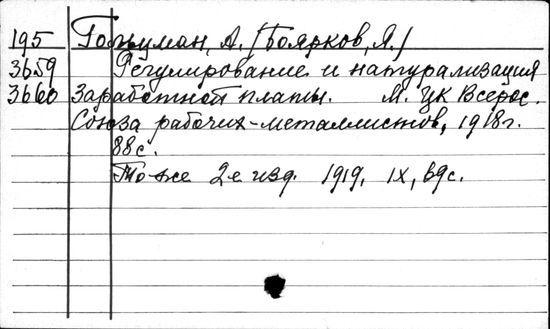 195 Гольцман, А. (Боярков, Я.)
3659 Регулирование и натурализация
3660 Заработной платы. М. ЦК Всерос.
Союза рабочих-металлистов, 1918г.
88с.
То же 2е изд. 1919, IX, 89с.